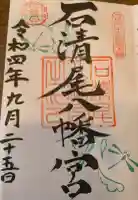 石清尾八幡宮
令和四年九月二十五日